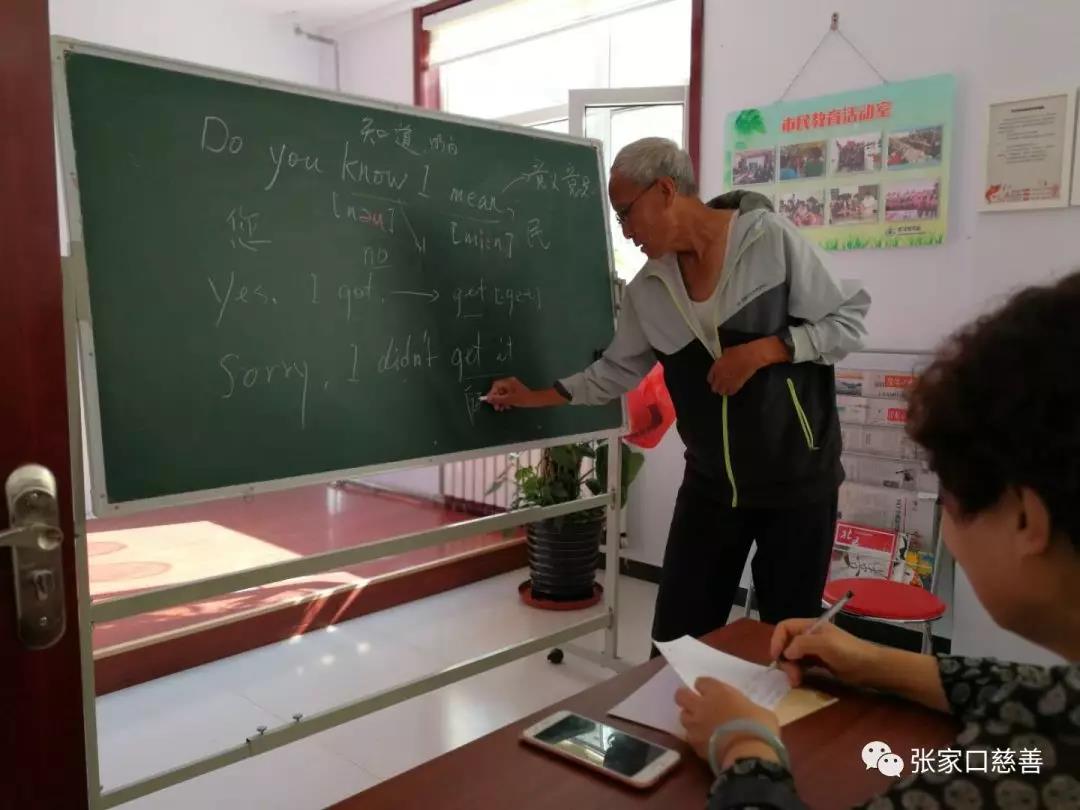 知道 明白
Do you know I mean, 意义 意思
[nəu] [mi:n] 民
您 no
Yes. I got. → get [get]
Sorry, I didn't get it
市民教育活动室
张家口慈善